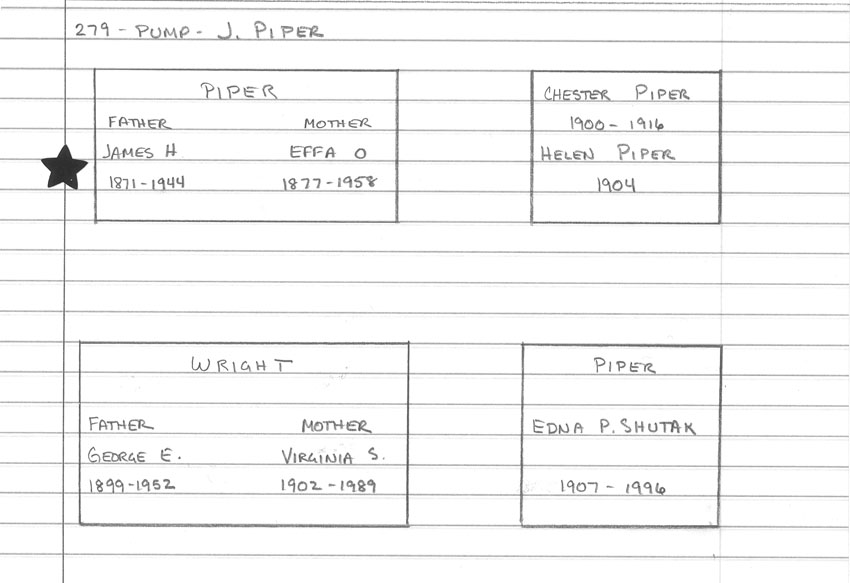 279 - PUMP - J. PIPER
PIPER
FATHER MOTHER
JAMES H EFFA O
1871-1944 1877-1958
CHESTER PIPER
1900-1916
HELEN PIPER
1904
WRIGHT
FATHER MOTHER
GEORGE E. VIRGINIA S.
1899-1952 1902-1989
PIPER
EDNA P. SHUTAK
1907-1996